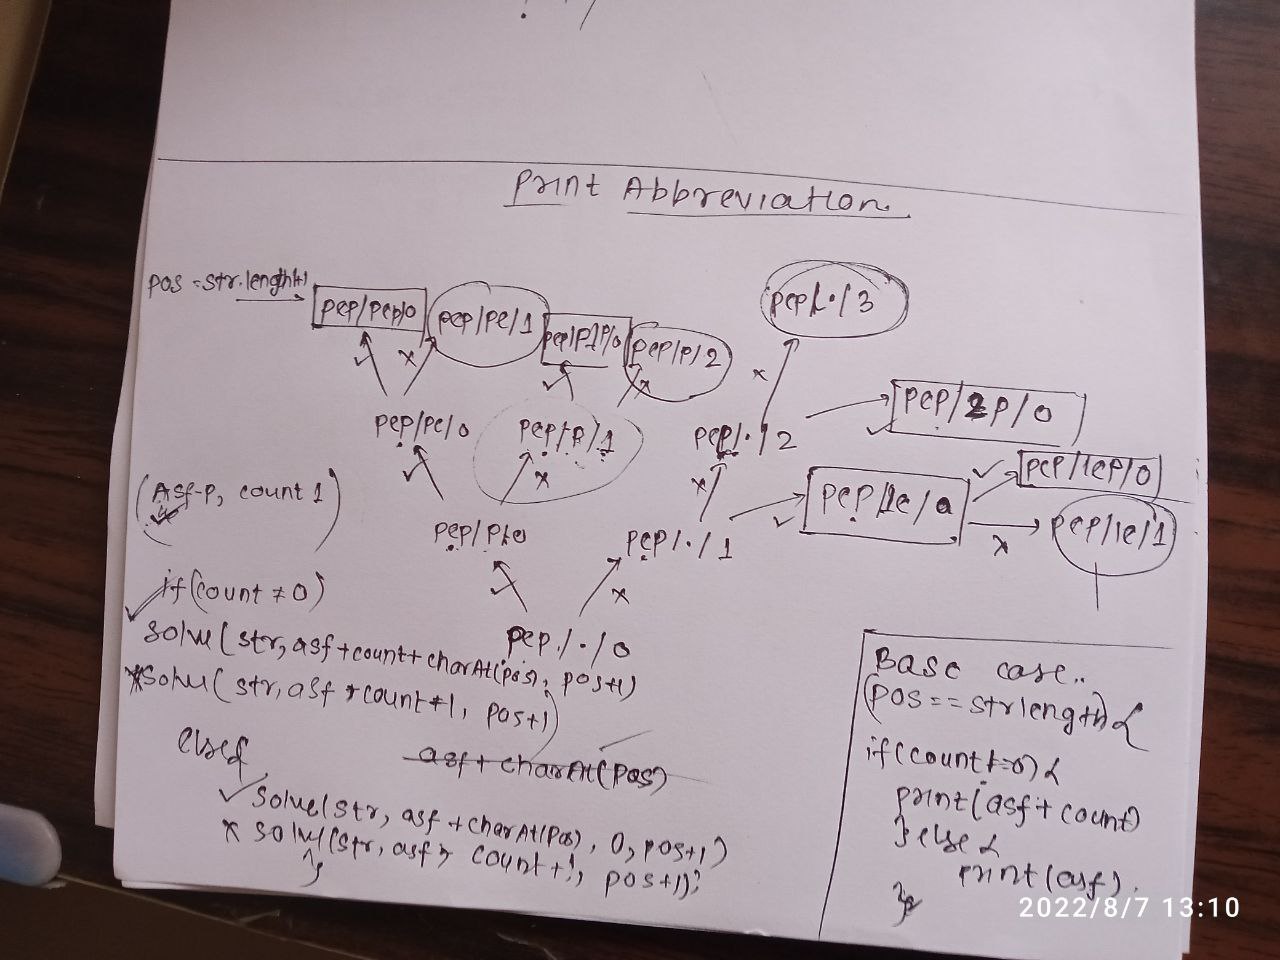 Print Abbreviation.
pos = str.length(+)
pep/pep/0
pep/pe/1
pep/p1p/0
pep/p/2
pep/./3
pep/pe/0
pep/p/1
pep/./2
pep/2p/0
(Asf-p, count 1)
pep/p/0
pep/./1
pep/1e/0
pep/1ep/0
pep/1e/1
pep/./0
if(count ≠ 0)
solve(str, asf+count+charAt(pos), pos+1)
solve(str, asf + count+1, pos+1)
else{
asf + charAt(pos)
solve(str, asf+charAt(pos), 0, pos+1)
solve(str, asf, count+1, pos+1);
}
Base case..
(pos==strlength){
if(count!=0){
print(asf+count)
}else{
print(asf).
}
2022/8/7 13:10